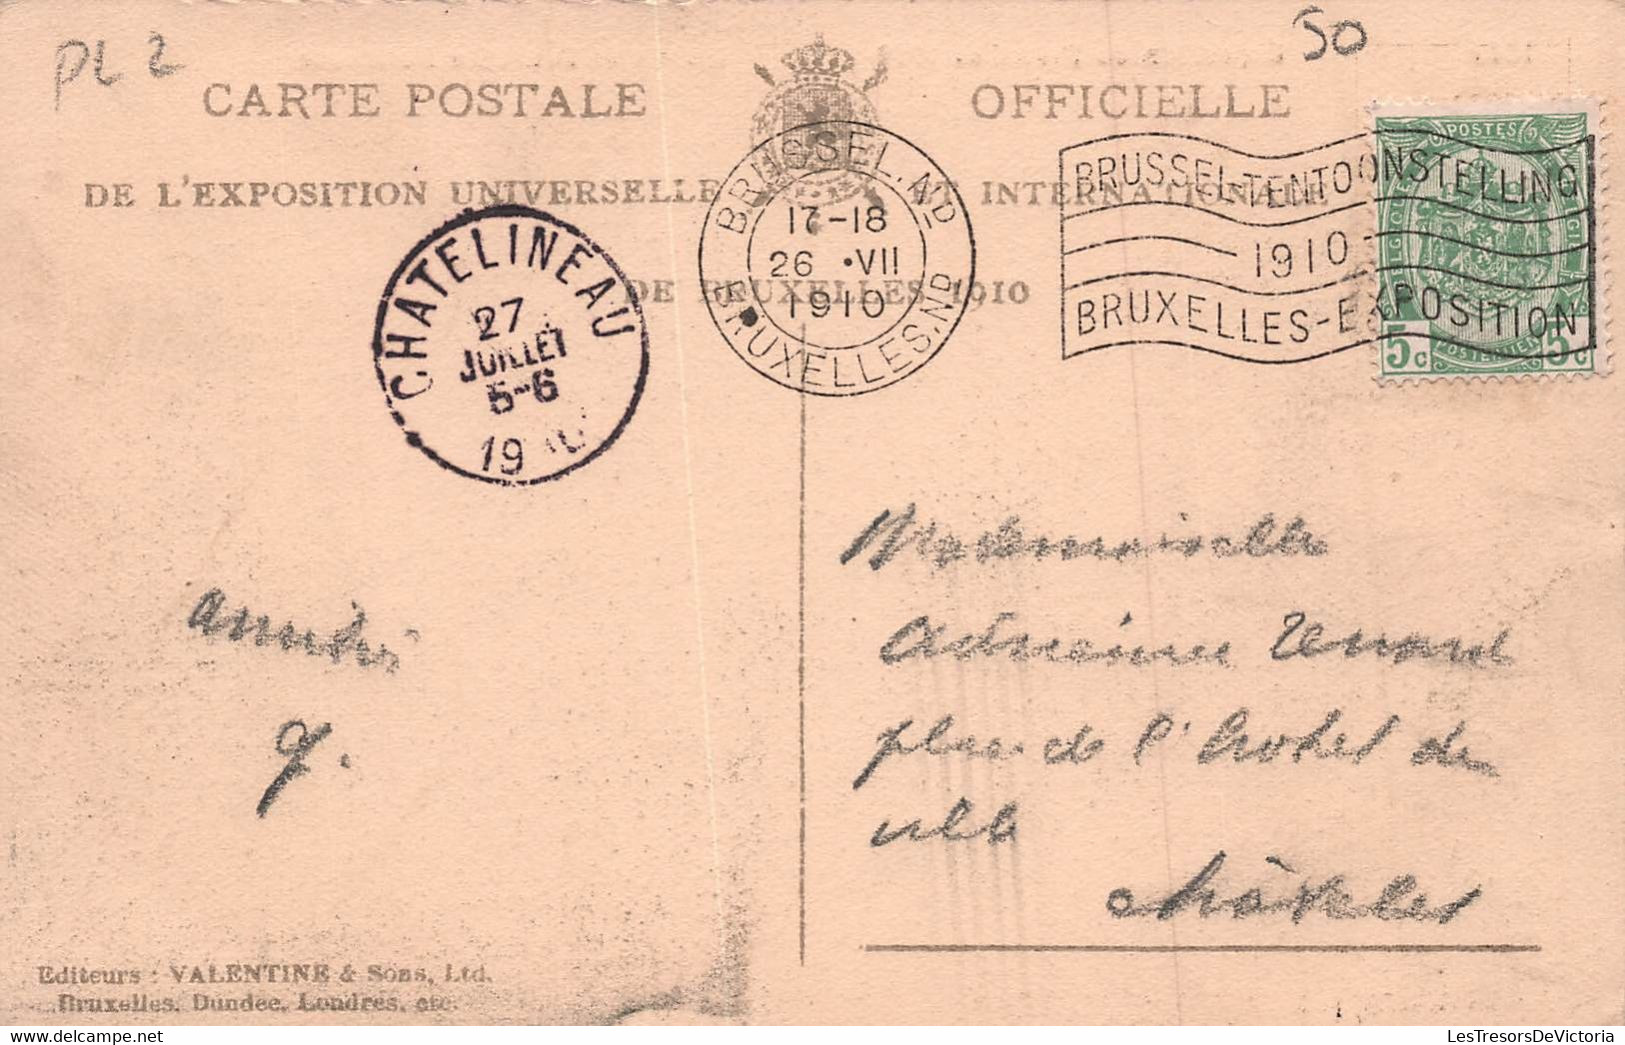 PL 2
50
CARTE POSTALE OFFICIELLE
DE L'EXPOSITION UNIVERSELLE ET INTERNATIONALE
DE BRUXELLES 1910
CHATELINEAU
27
JUILLET
5-6
19
BRUSSEL.ND
17-18
26 •VII
1910
BRUXELLES.ND
BRUSSEL-TENTOONSTELLING
-1910-
BRUXELLES-EXPOSITION
POSTES
5c 5c
Mademoiselle
Adrienne Renard
place de l'hotel de
ville
Châtelet
amitiés
Editeurs : VALENTINE & Sons, Ltd.
Bruxelles, Dundee, Londres, etc.
LesTresorsDeVictoria.com